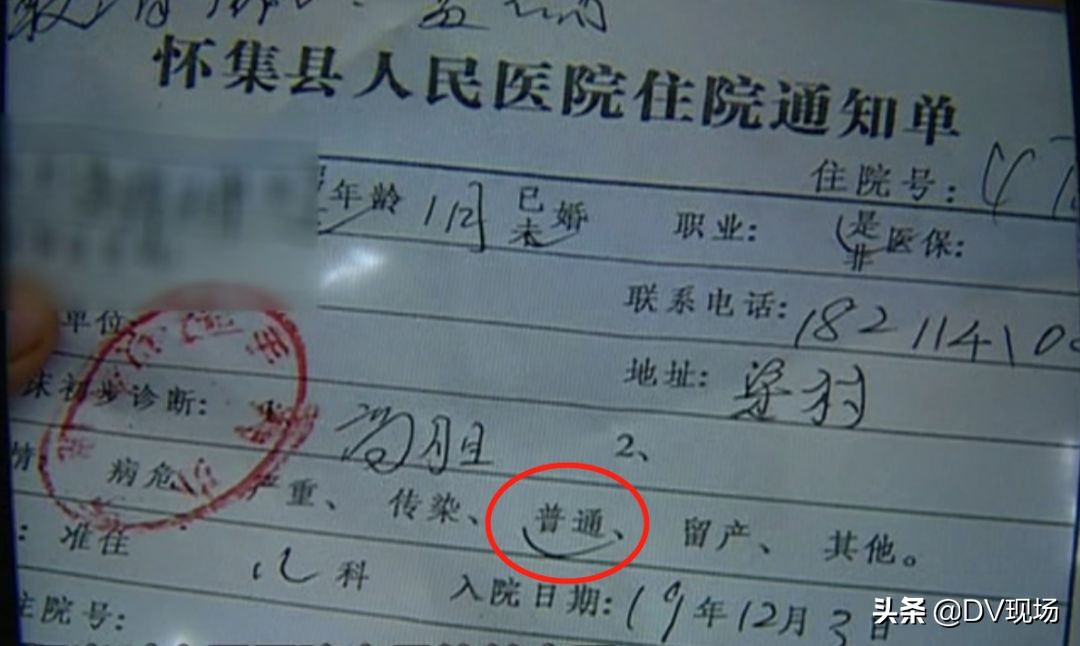 怀集县人民医院住院通知单
住院号:
年龄 1月 已未婚 职业: 是非医保:
单位:
联系电话: 182114100
床初步诊断: 1、 高胆 2、
地址: 梁村
情 病危、严重、传染、普通、留产、其他。
: 准住 儿科 入院日期: 19年12月3日
住院号:
头条 @DV现场